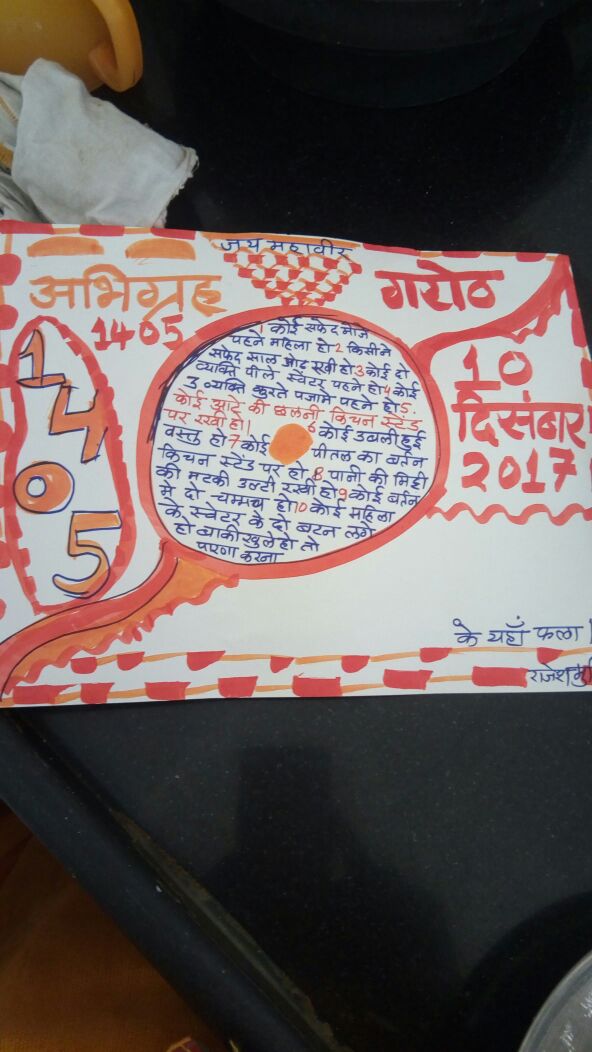 जय महावीर
अभिग्रह
गरोठ
1405
1405
10
दिसंबर
2017
1 कोई सफेद मोजे
पहने महिला हो 2 किसीने
सफेद साल ओढ रखी हो 3 कोई दो
व्यक्ति पीले स्वेटर पहने हो 4 कोई
3 व्यक्ति कुरते पजामे पहने हो 5.
कोई आटे की छलनी किचन स्टेंड
पर रखी हो। 6 कोई उबली हुई
वस्तु हो 7 कोई पीतल का बर्तन
किचन स्टेंड पर हो 8 पानी की मिट्टी
की मटकी उल्टी रखी हो 9 कोई बर्तन
मे दो चम्मच हो 10 कोई महिला
के स्वेटर के दो बटन लगे
हो बाकी खुले हो तो
पारणा करना
के यहाँ फला
राजेश मु